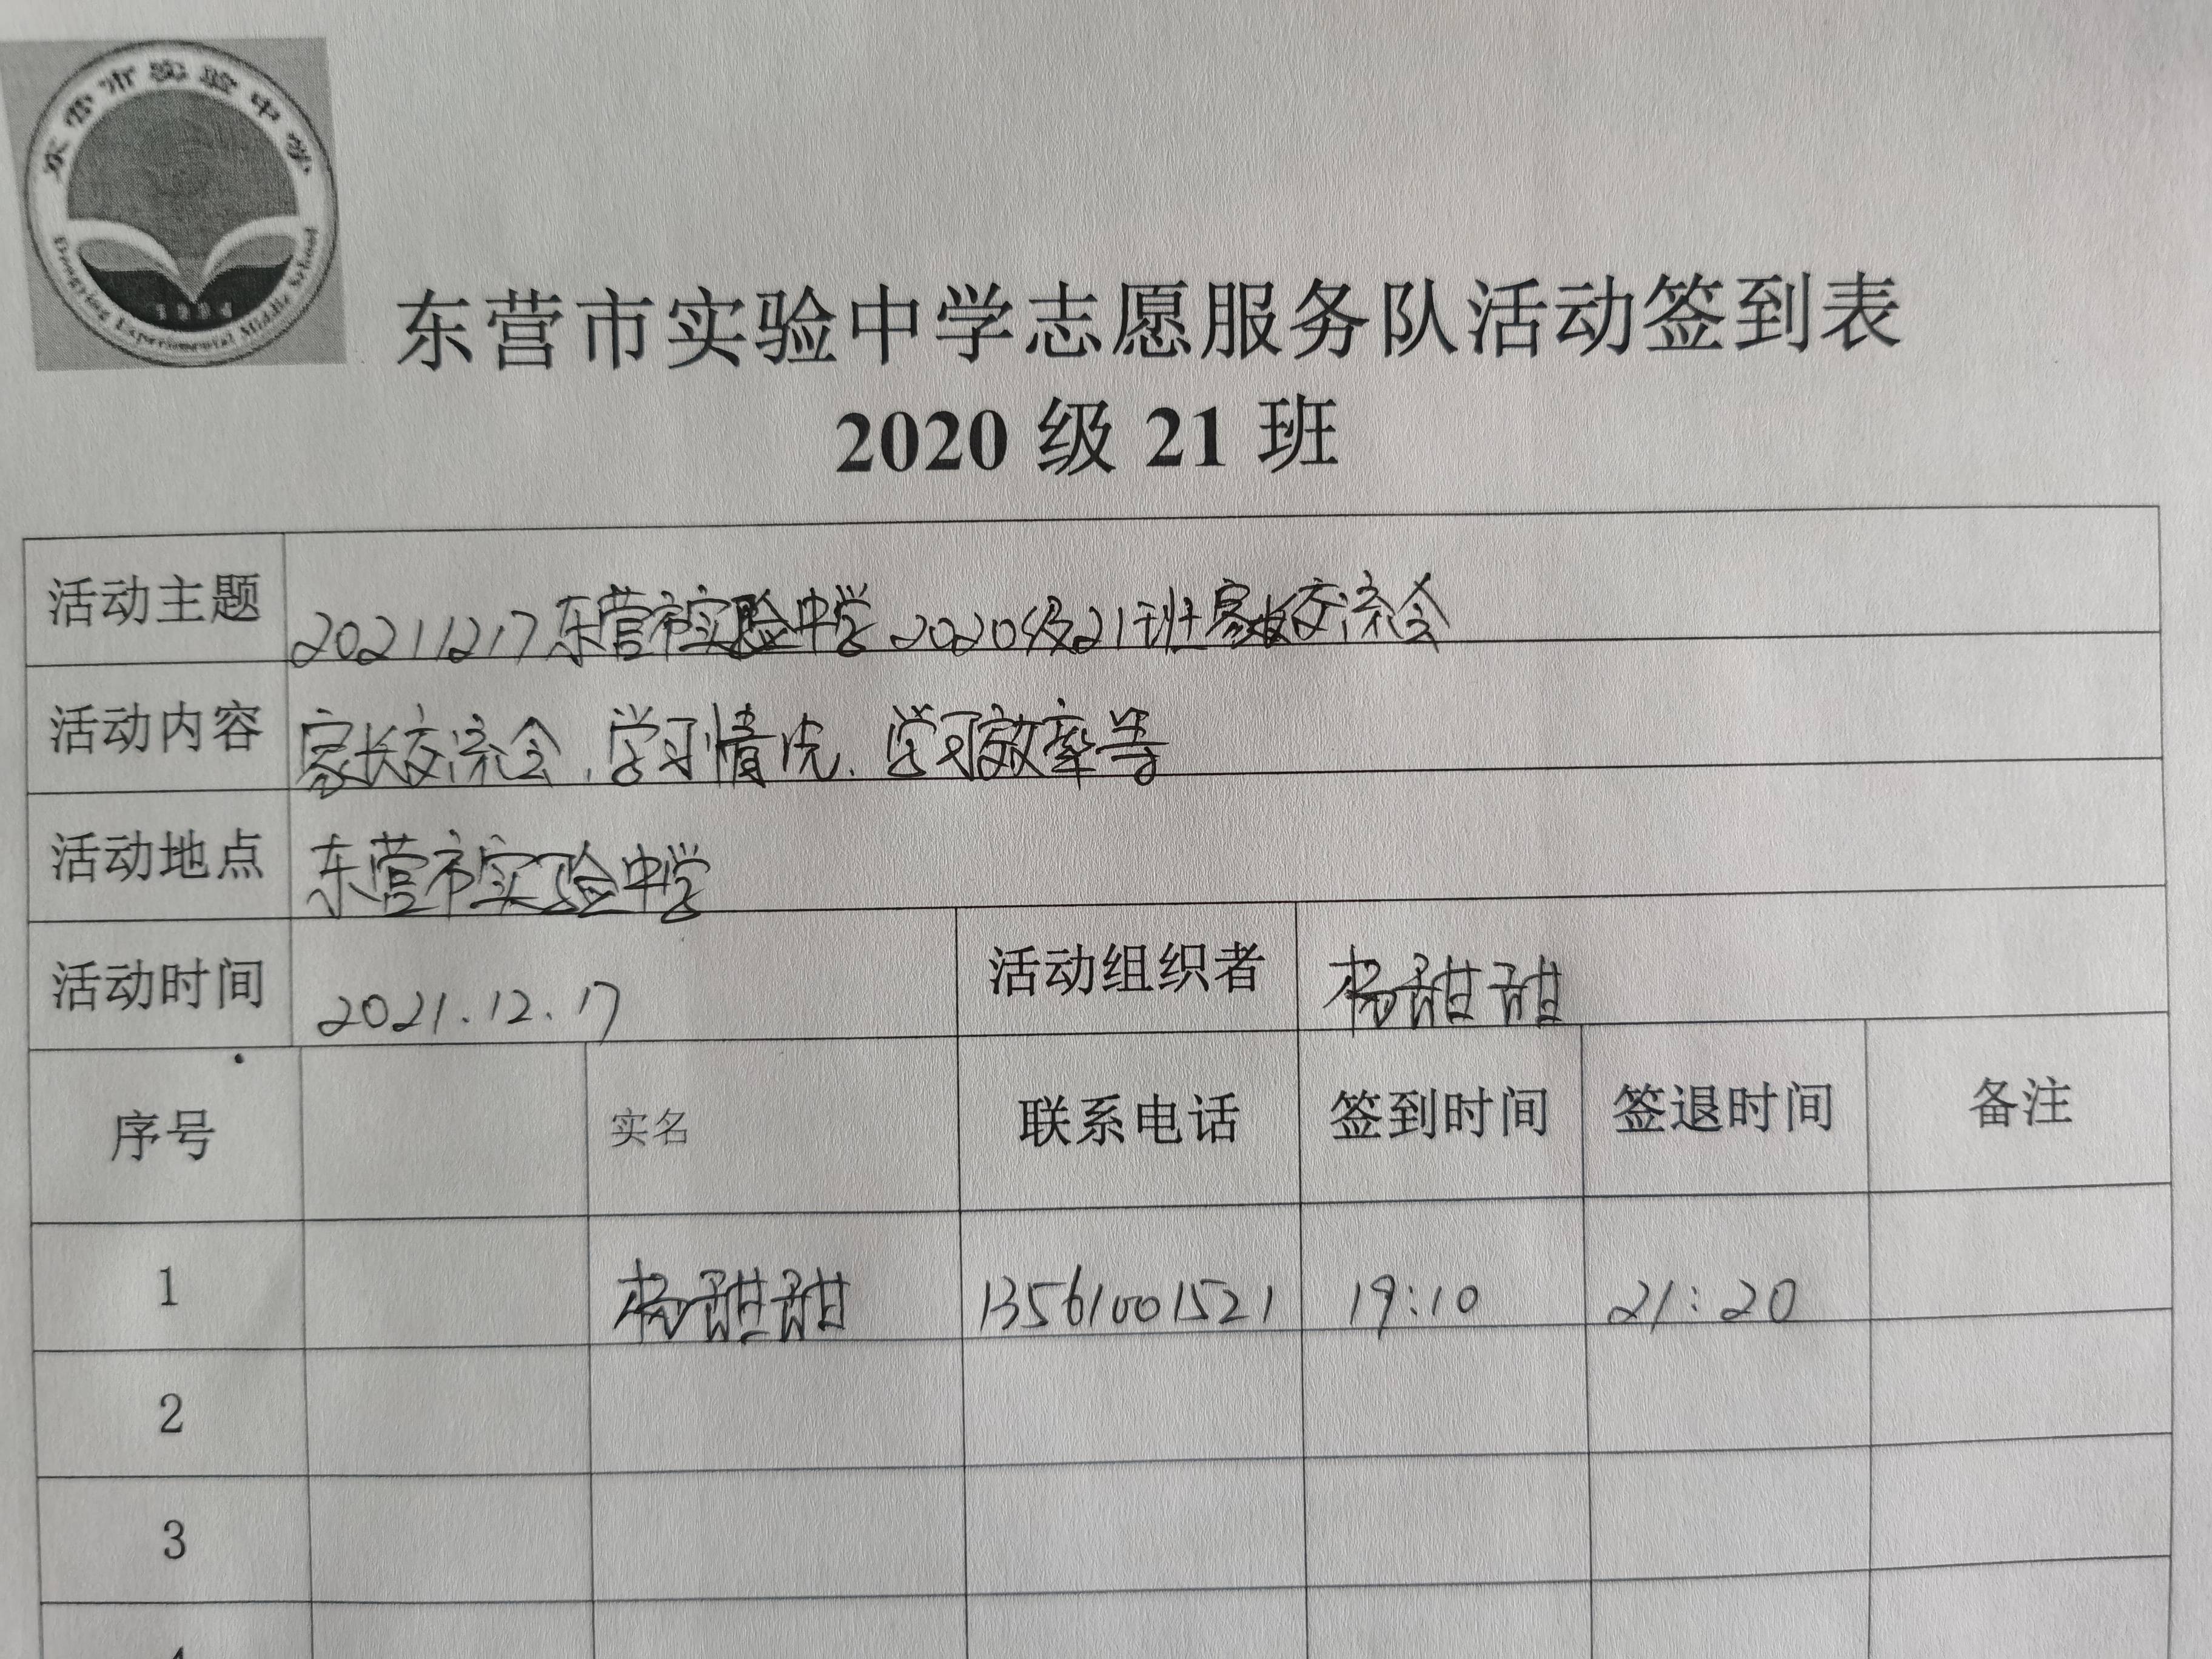 东营市实验中学
1994
Dongying Experimental Middle School
东营市实验中学志愿服务队活动签到表
2020 级 21 班
活动主题 20211217东营市实验中学2020级21班家长交流会
活动内容 家长交流会、学习情况、学习效率等
活动地点 东营市实验中学
活动时间 2021.12.17 活动组织者 杨甜甜
序号 实名 联系电话 签到时间 签退时间 备注
1 杨甜甜 13561001521 19:10 21:20
2
3